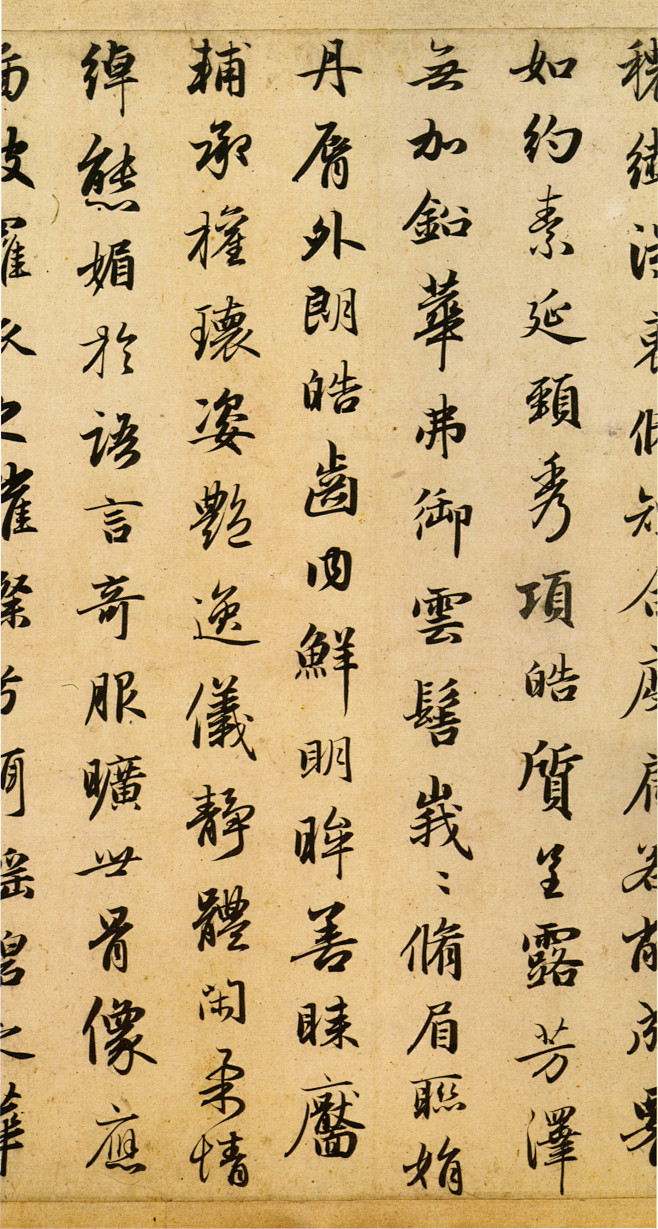 穠纖得衷脩短合度肩若削成
如約素延頸秀項皓質呈露芳澤
無加鈆華弗御雲髻峩〻脩眉聯娟
丹脣外朗皓齒內鮮明眸善睞靨
輔承權瓌姿艷逸儀靜體閑柔情
綽態媚於語言奇服曠世骨像應
圖披羅衣之璀粲兮珥瑤碧之華